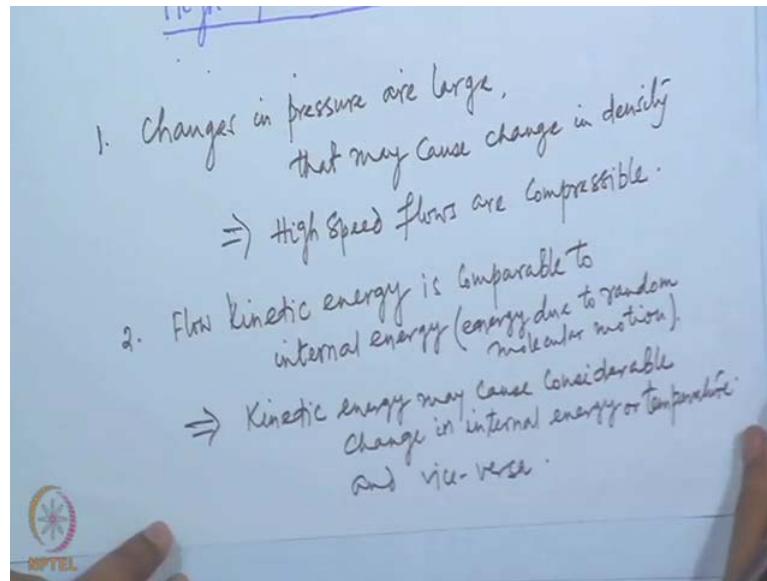 High
1. Changes in pressure are large,
that may cause change in density
⇒ High speed flows are compressible.
2. Flow kinetic energy is comparable to
internal energy (energy due to random
molecular motion).
⇒ Kinetic energy may cause considerable
change in internal energy or temperature.
and vice-verse.
NPTEL